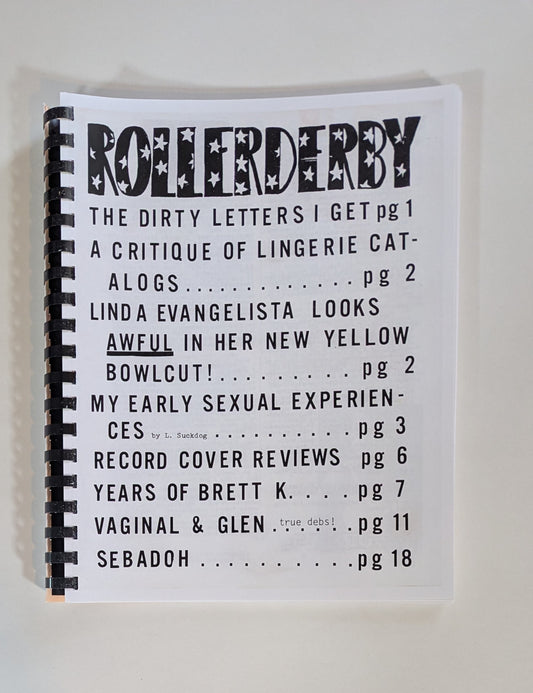 ROLLERDERBY
THE DIRTY LETTERS I GET pg 1
A CRITIQUE OF LINGERIE CAT-
ALOGS............. pg 2
LINDA EVANGELISTA LOOKS
AWFUL IN HER NEW YELLOW
BOWLCUT!......... pg 2
MY EARLY SEXUAL EXPERIEN-
CES by L. Suckdog ..........pg 3
RECORD COVER REVIEWS pg 6
YEARS OF BRETT K. . . . pg 7
VAGINAL & GLEN ...true debs!...pg 11
SEBADOH ...........pg 18